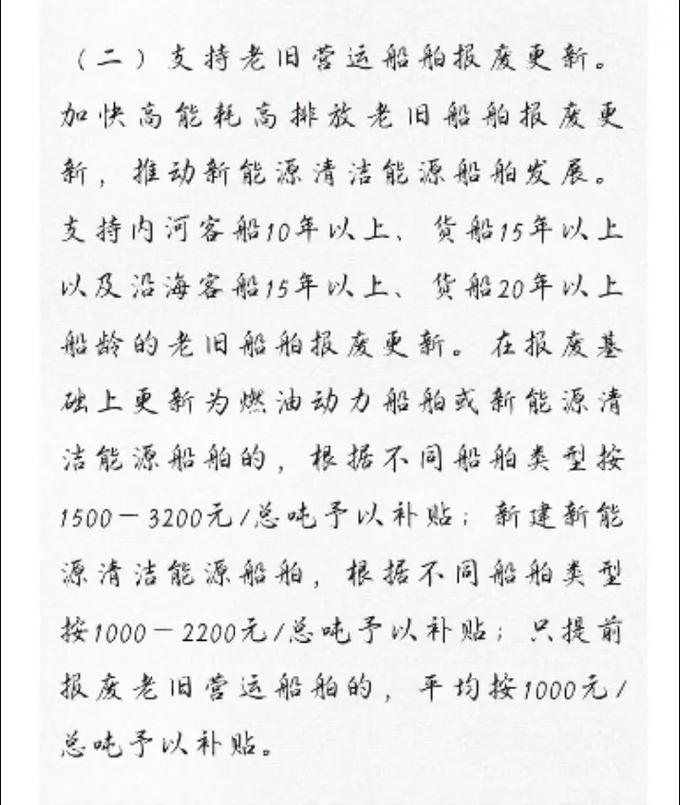 （二）支持老旧营运船舶报废更新。
加快高能耗高排放老旧船舶报废更
新，推动新能源清洁能源船舶发展。
支持内河客船10年以上、货船15年以上
以及沿海客船15年以上、货船20年以上
船龄的老旧船舶报废更新。在报废基
础上更新为燃油动力船舶或新能源清
洁能源船舶的，根据不同船舶类型按
1500－3200元/总吨予以补贴；新建新能
源清洁能源船舶，根据不同船舶类型
按1000－2200元/总吨予以补贴；只提前
报废老旧营运船舶的，平均按1000元/
总吨予以补贴。